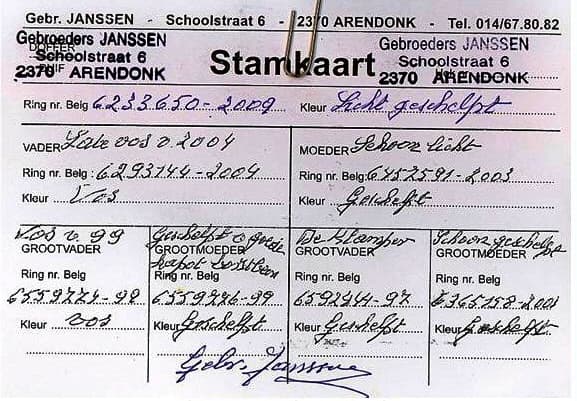 Gebr. JANSSEN - Schoolstraat 6 - 2370 ARENDONK - Tel. 014/67.80.82
Gebroeders JANSSEN Gebroeders JANSSEN
DOFFER Schoolstraat 6 Stamkaart Schoolstraat 6
2370 ARENDONK 2370 ARENDONK
Ring nr. Belg 6233650-2009 Kleur Licht geschelpt
VADER Late vos v. 2004 MOEDER Schoon licht
Ring nr. Belg : 6293144-2004 Ring nr. Belg: 6457591-2003
Kleur Vos Kleur Geschelft
Vos v. 99 Geschelpt v goede De Stamper Schoon geschelpt
GROOTVADER GROOTMOEDER GROOTVADER GROOTMOEDER
kapot
Ring nr. Belg Ring nr. Belg Ring nr. Belg Ring nr. Belg
6559774-98 6559776-99 6592144-97 6365158-2001
Kleur vos Kleur Geschelft Kleur Geschelft Kleur Geschelft
Gebr. Janssen